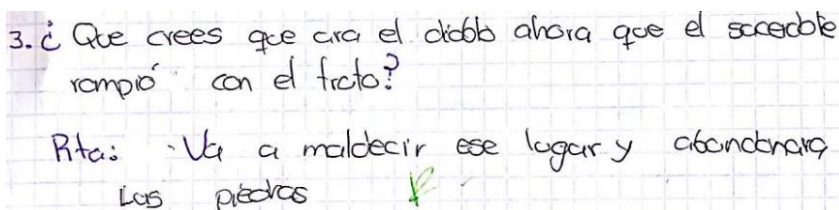 3. ¿ Que crees que ara el diablo ahora que el sacerdote
rompió con el trato?
Rta: Va a maldecir ese lugar y abandonara
Las piedras